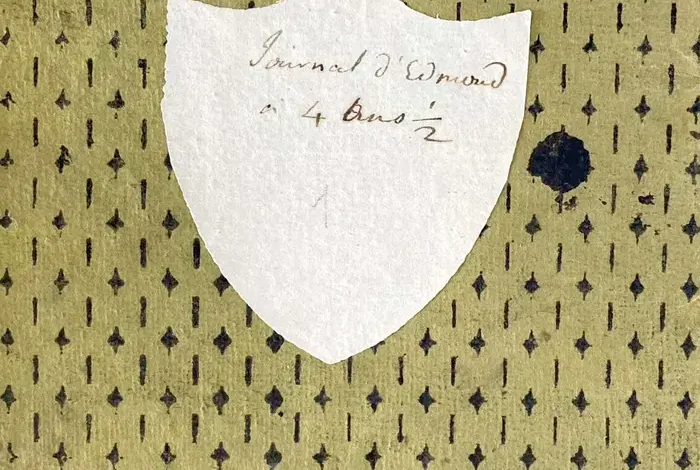 Journal d'Edmond
à 4 ans 1/2
1